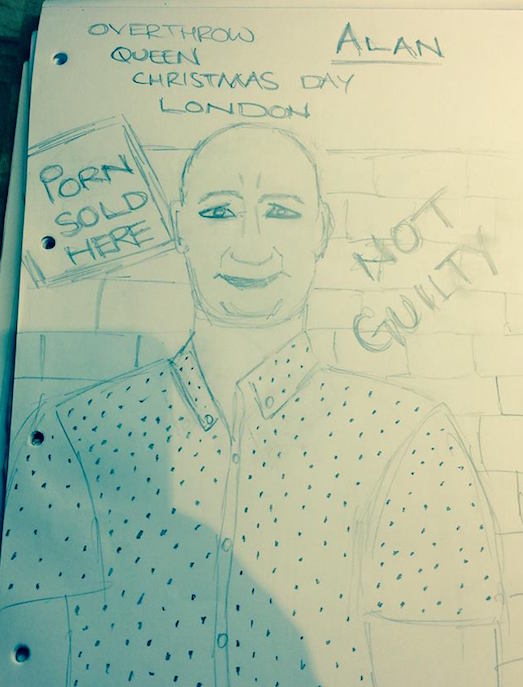 OVERTHROW
QUEEN
CHRISTMAS DAY
LONDON
ALAN
PORN
SOLD
HERE
NOT
GUILTY